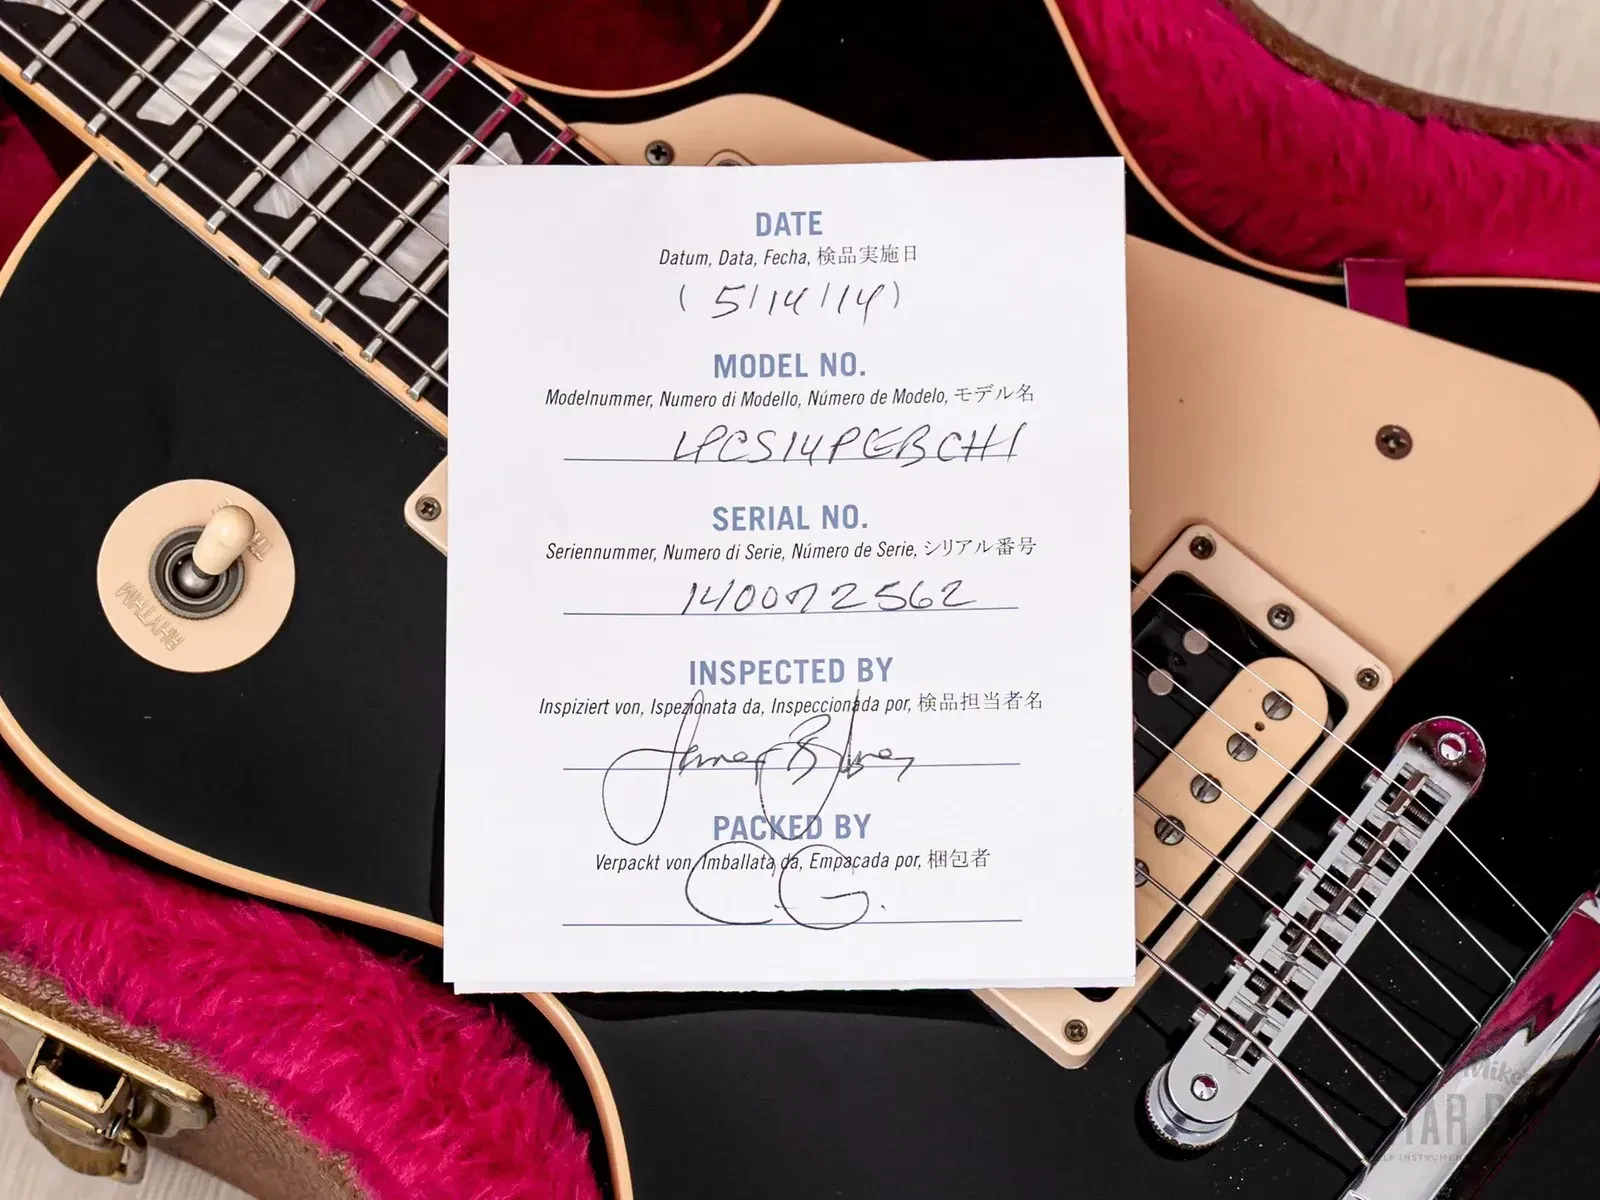 DATE
Datum, Data, Fecha, 検品実施日
( 5/14/14)
MODEL NO.
Modelnummer, Numero di Modello, Número de Modelo, モデル名
LPCS14PEBCH1
SERIAL NO.
Seriennummer, Numero di Serie, Número de Serie, シリアル番号
140072562
INSPECTED BY
Inspiziert von, Ispezionata da, Inspeccionada por, 検品担当者名
PACKED BY
Verpackt von, Imballata da, Empacada por, 梱包者
C.G.
RHYTHM
Mike